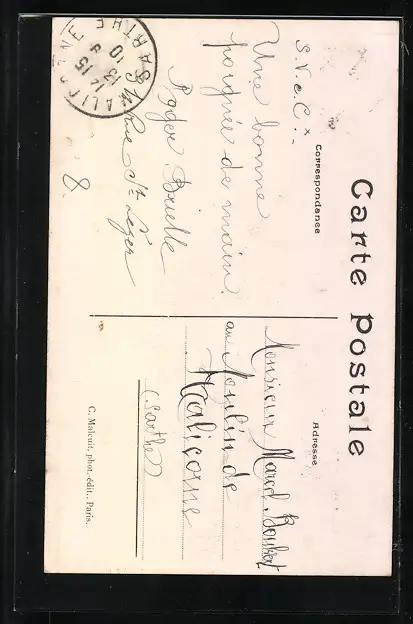 Carte Postale
Correspondance
S.V.C.
Une bonne
poignée de main.
Roger
Rue St Léger
8.
MALICORNE
14 15
13
10
SARTHE
Adresse
Monsieur Marcel
au Moulin de
Malicorne
(Sarthe)
C. Malcuit, phot.-édit., Paris.